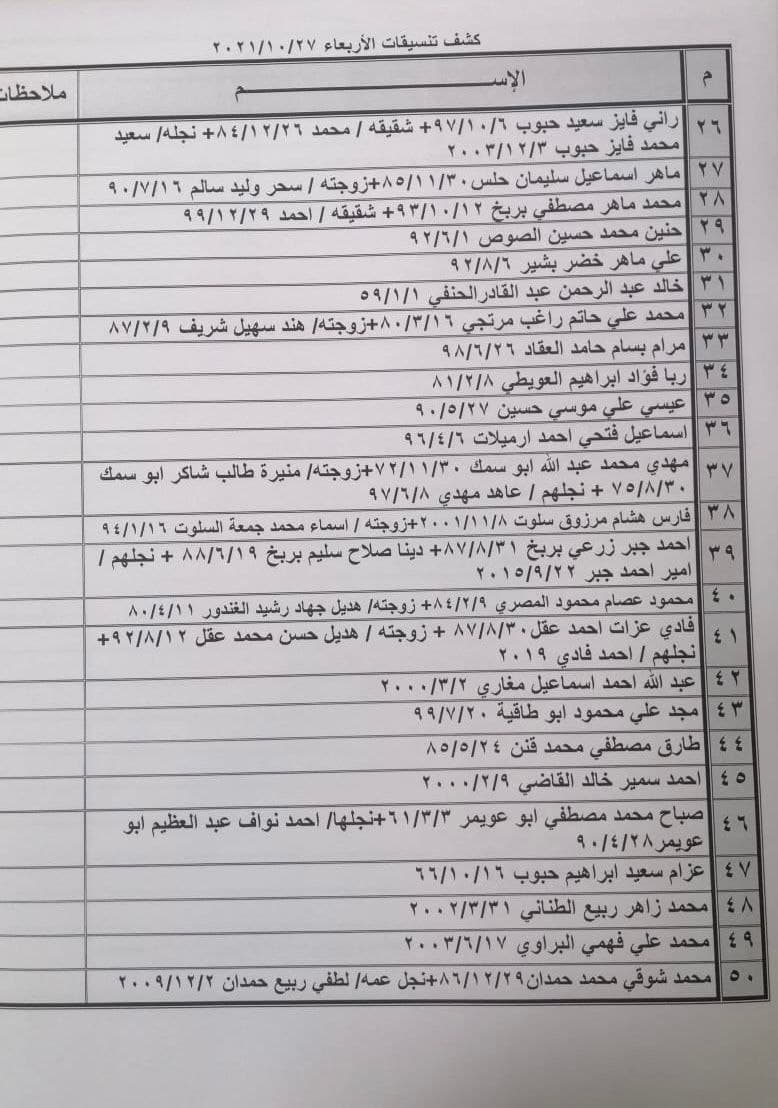 كشف تنسيقات الأربعاء ٢٠٢١/١٠/٢٧
م الإســـــــــــــم ملاحظات
٢٦ راني فايز سعيد حبوب ٩٧/١٠/٦+ شقيقه / محمد ٨٤/١٢/٢٦+ نجله/ سعيد
محمد فايز حبوب ٢٠٠٣/١٢/٣
٢٧ ماهر اسماعيل سليمان حلس ٨٥/١١/٣٠+زوجته / سحر وليد سالم ٩٠/٧/١٦
٢٨ محمد ماهر مصطفي بربخ ٩٣/١٠/١٢+ شقيقه / احمد ٩٩/١٢/٢٩
٢٩ حنين محمد حسين الصوص ٩٢/٦/١
٣٠ علي ماهر خضر بشير ٩٢/٨/٦
٣١ خالد عبد الرحمن عبد القادرالحنفي ٥٩/١/١
٣٢ محمد علي حاتم راغب مرتجي ٨٠/٣/١٦+زوجته/ هند سهيل شريف ٨٧/٢/٩
٣٣ مرام بسام حامد العقاد ٩٨/٦/٢٦
٣٤ ربا فؤاد ابراهيم العويطي ٨١/٢/٨
٣٥ عيسي علي موسي حسين ٩٠/٥/٢٧
٣٦ اسماعيل فتحي احمد ارميلات ٩٦/٤/٦
٣٧ مهدي محمد عبد الله ابو سمك ٧٢/١١/٣٠+زوجته/ منيرة طالب شاكر ابو سمك
٧٥/٨/٣٠ + نجلهم / عاهد مهدي ٩٧/٦/٨
٣٨ فارس هشام مرزوق سلوت ٢٠٠١/١١/٨+زوجته / اسماء محمد جمعة السلوت ٩٤/١/١٦
٣٩ احمد جبر زرعي بربخ ٨٧/٨/٣١+ دينا صلاح سليم بربخ ٨٨/٦/١٩ + نجلهم /
امير احمد جبر ٢٠١٥/٩/٢٢
٤٠ محمود عصام محمود المصري ٨٤/٢/٩+ زوجته/ هديل جهاد رشيد الغندور ٨٠/٤/١١
٤١ فادي عزات احمد عقل ٨٧/٨/٣٠ + زوجته / هديل حسن محمد عقل ٩٢/٨/١٢+
نجلهم / احمد فادي ٢٠١٩
٤٢ عبد الله احمد اسماعيل مغاري ٢٠٠٠/٣/٢
٤٣ مجد علي محمود ابو طاقية ٩٩/٧/٢٠
٤٤ طارق مصطفي محمد قنن ٨٥/٥/٢٤
٤٥ احمد سمير خالد القاضي ٢٠٠٠/٢/٩
٤٦ صباح محمد مصطفي ابو عويمر ٦١/٣/٣+نجلها/ احمد نواف عبد العظيم ابو
عويمر ٩٠/٤/٢٨
٤٧ عزام سعيد ابراهيم حبوب ٦٦/١٠/١٦
٤٨ محمد زاهر ربيع الطناني ٢٠٠٢/٣/٣١
٤٩ محمد علي فهمي البراوي ٢٠٠٣/٦/١٧
٥٠ محمد شوقي محمد حمدان ٨٦/١٢/٢٩+نجل عمه/ لطفي ربيع حمدان ٢٠٠٩/١٢/٢